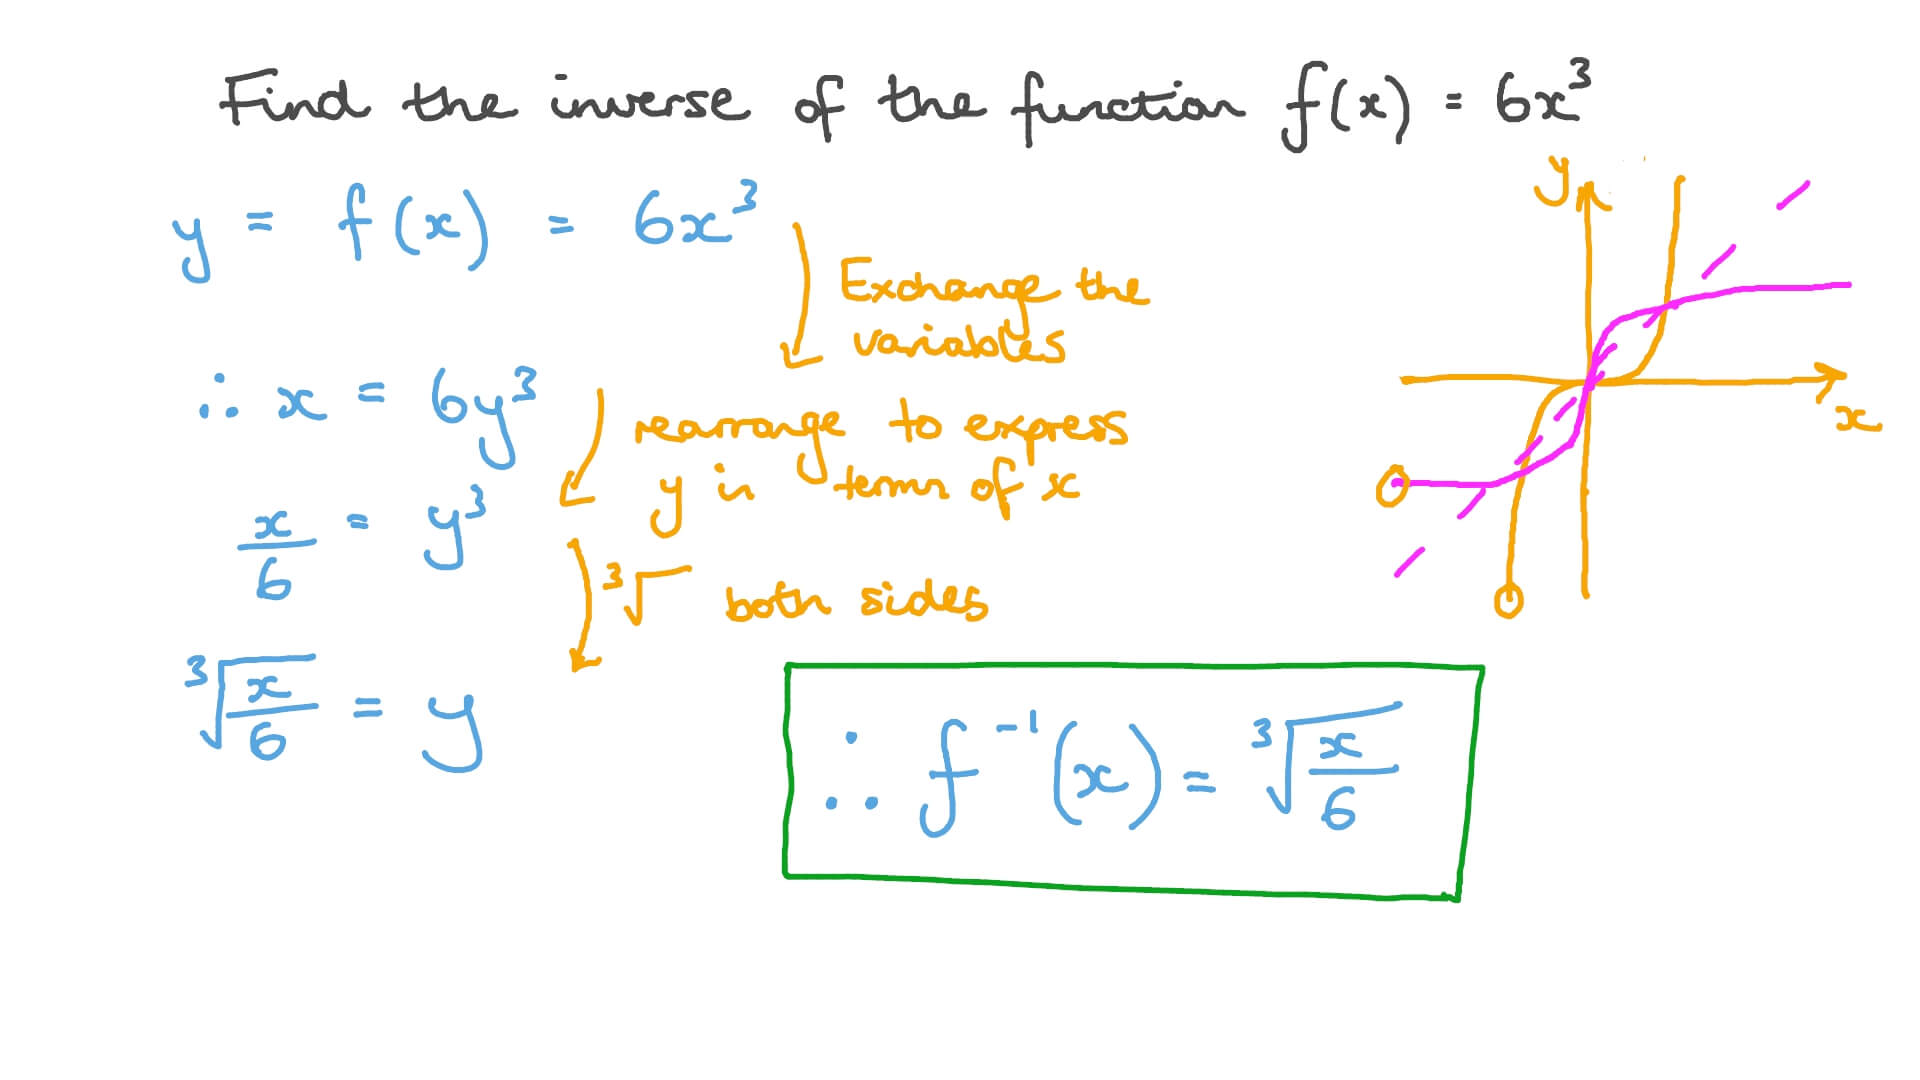 Find the inverse of the function f(x) = 6x³
y = f(x) = 6x³
Exchange the
variables
∴ x = 6y³
rearrange to express
y in terms of x
x/6 = y³
³√ both sides
³√(x/6) = y
∴ f⁻¹(x) = ³√(x/6)
y
x